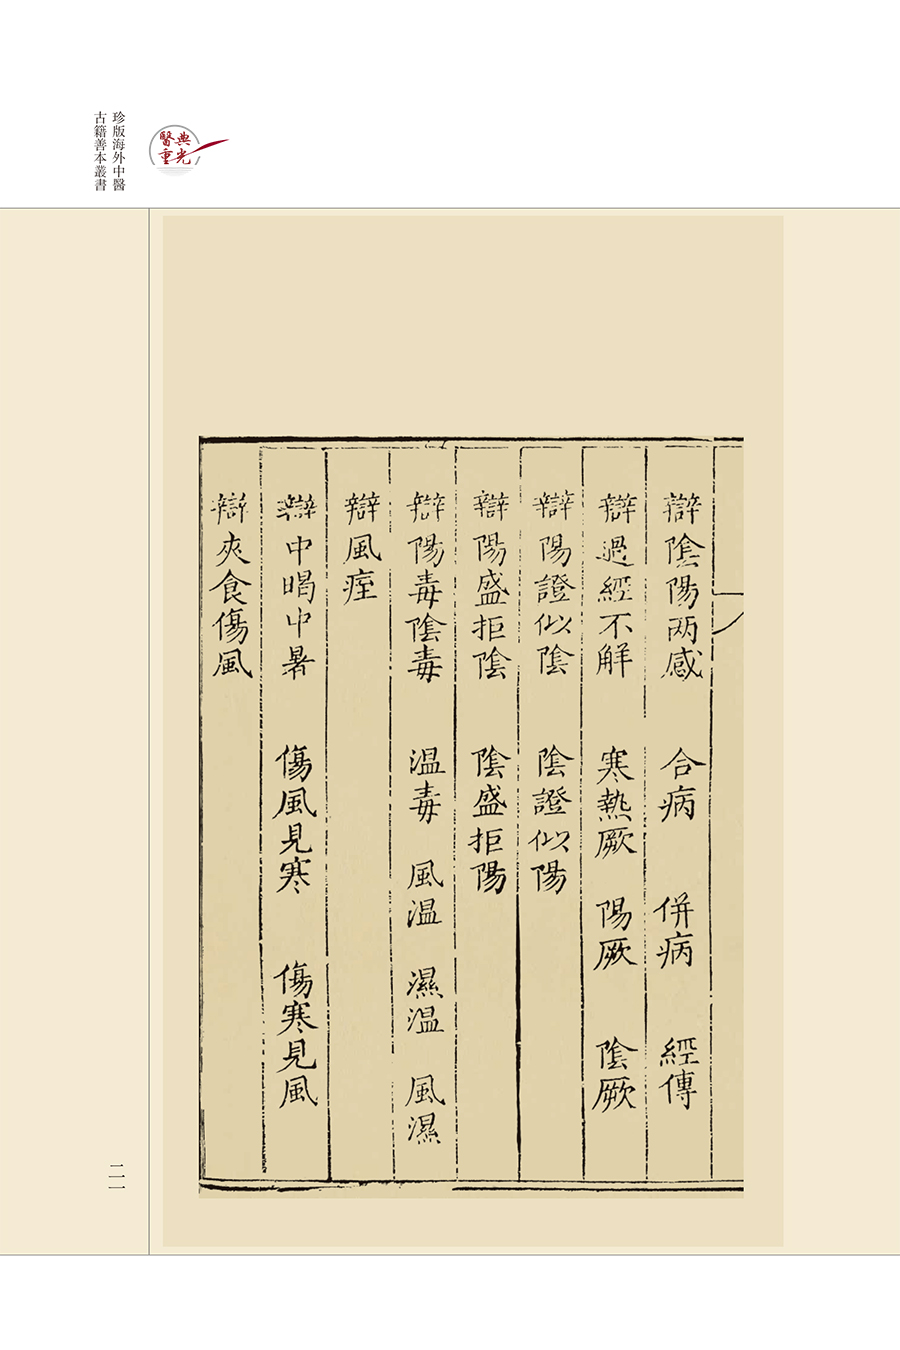 珍版海外中醫
古籍善本叢書
醫典
重光
辯陰陽兩感　合病　併病　經傳
辯過經不解　寒熱厥　陽厥　陰厥
辯陽證似陰　陰證似陽
辯陽盛拒陰　陰盛拒陽
辯陽毒陰毒　溫毒　風溫　濕溫　風濕
辯風痓
辯中暍中暑　傷風見寒　傷寒見風
辯夾食傷風
二一